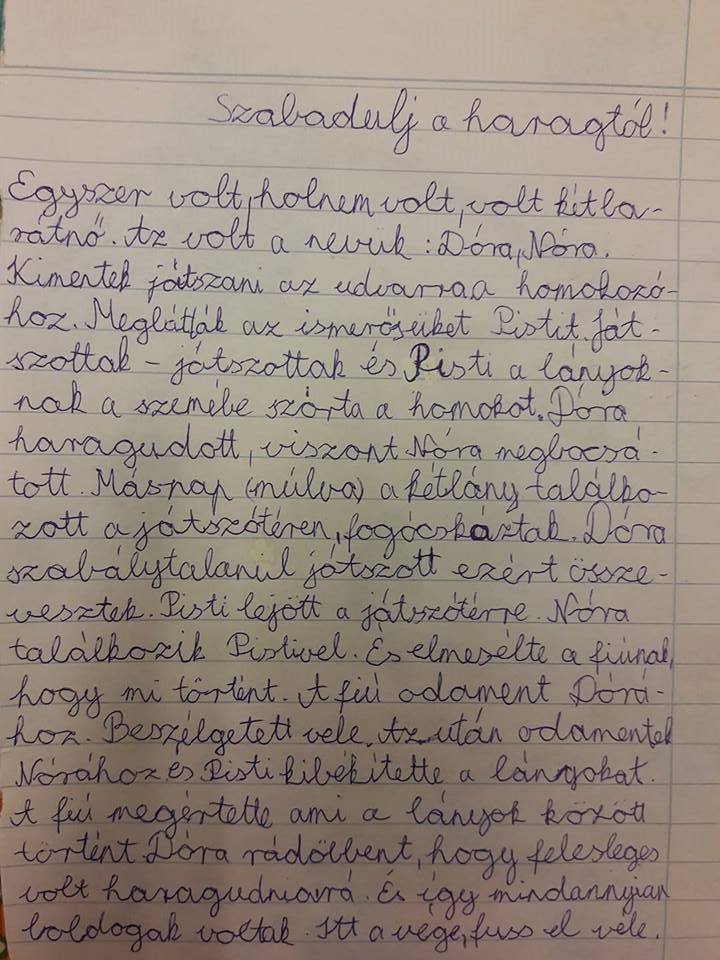 Szabadulj a haragtól!
Egyszer volt, holnem volt, volt kétba-
rátnő. Az volt a nevük: Dóra, Nóra.
Kimentek játszani az udvarraa homokozó-
hoz. Meglátták az ismerősüket Pistit. Ját-
szottak - játszottak és Pisti a lányok-
nak a szemébe szórta a homokot. Dóra
haragudott, viszont Nóra megbocsá-
tott. Másnap (múlva) a kétlány találko-
zott a játszótéren, fogócskáztak. Dóra
szabálytalanúl játszott ezért össze-
vesztek. Pisti lejött a játszótérre. Nóra
találkozik Pistivel. És elmesélte a fiúnak,
hogy mi történt. A fiú odament Dórá-
hoz. Beszélgetett vele. Az után odamentek
Nórához és Pisti kibékítette a lányokat.
A fiú megértette ami a lányok között
történt. Dóra rádöbbent, hogy felesleges
volt haragudniarrá. És így mindannyian
boldogak voltak. Itt a vége, fuss el véle.